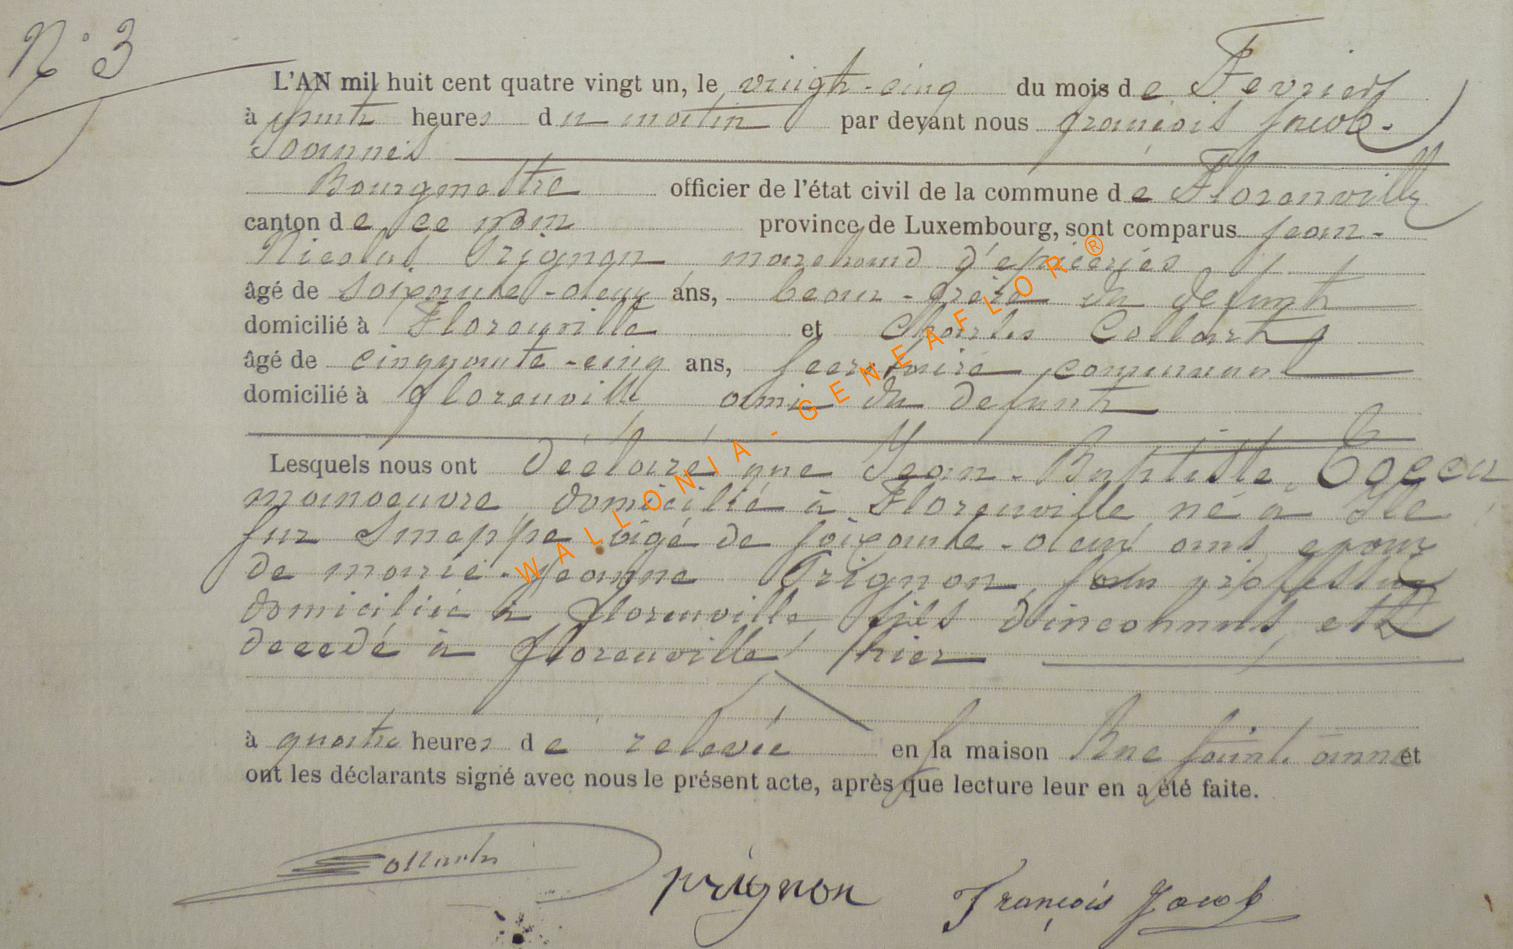 N° 3
L'AN mil huit cent quatre vingt un, le vingt-cinq du mois de Fevrier
à huit heures du matin par devant nous françois Jacob-
Joannes
Bourgmestre officier de l'état civil de la commune de Florenville
canton de ce nom province de Luxembourg, sont comparus Jean-
Nicolas Prignon marchand d'épiceries
âgé de soixante-deux ans, beau-frère du defunt
domicilié à Florenville et Charles Collart
âgé de cinquante-cinq ans, secretaire communal
domicilié à florenville ami du defunt
Lesquels nous ont déclaré que Jean-Baptiste
manoeuvre domicilié à Florenville né à
sur âgé de soixante-deux ans epoux
de marie-Jeanne Prignon, sans profession
domiciliée à florenville, fils d'inconnus, est
decedé à florenville hier
à quatre heures de relevée en la maison Rue sainte anne et
ont les déclarants signé avec nous le présent acte, après que lecture leur en a été faite.
Collart prignon François Jacob
WALLONIA - GENEAFLOR®